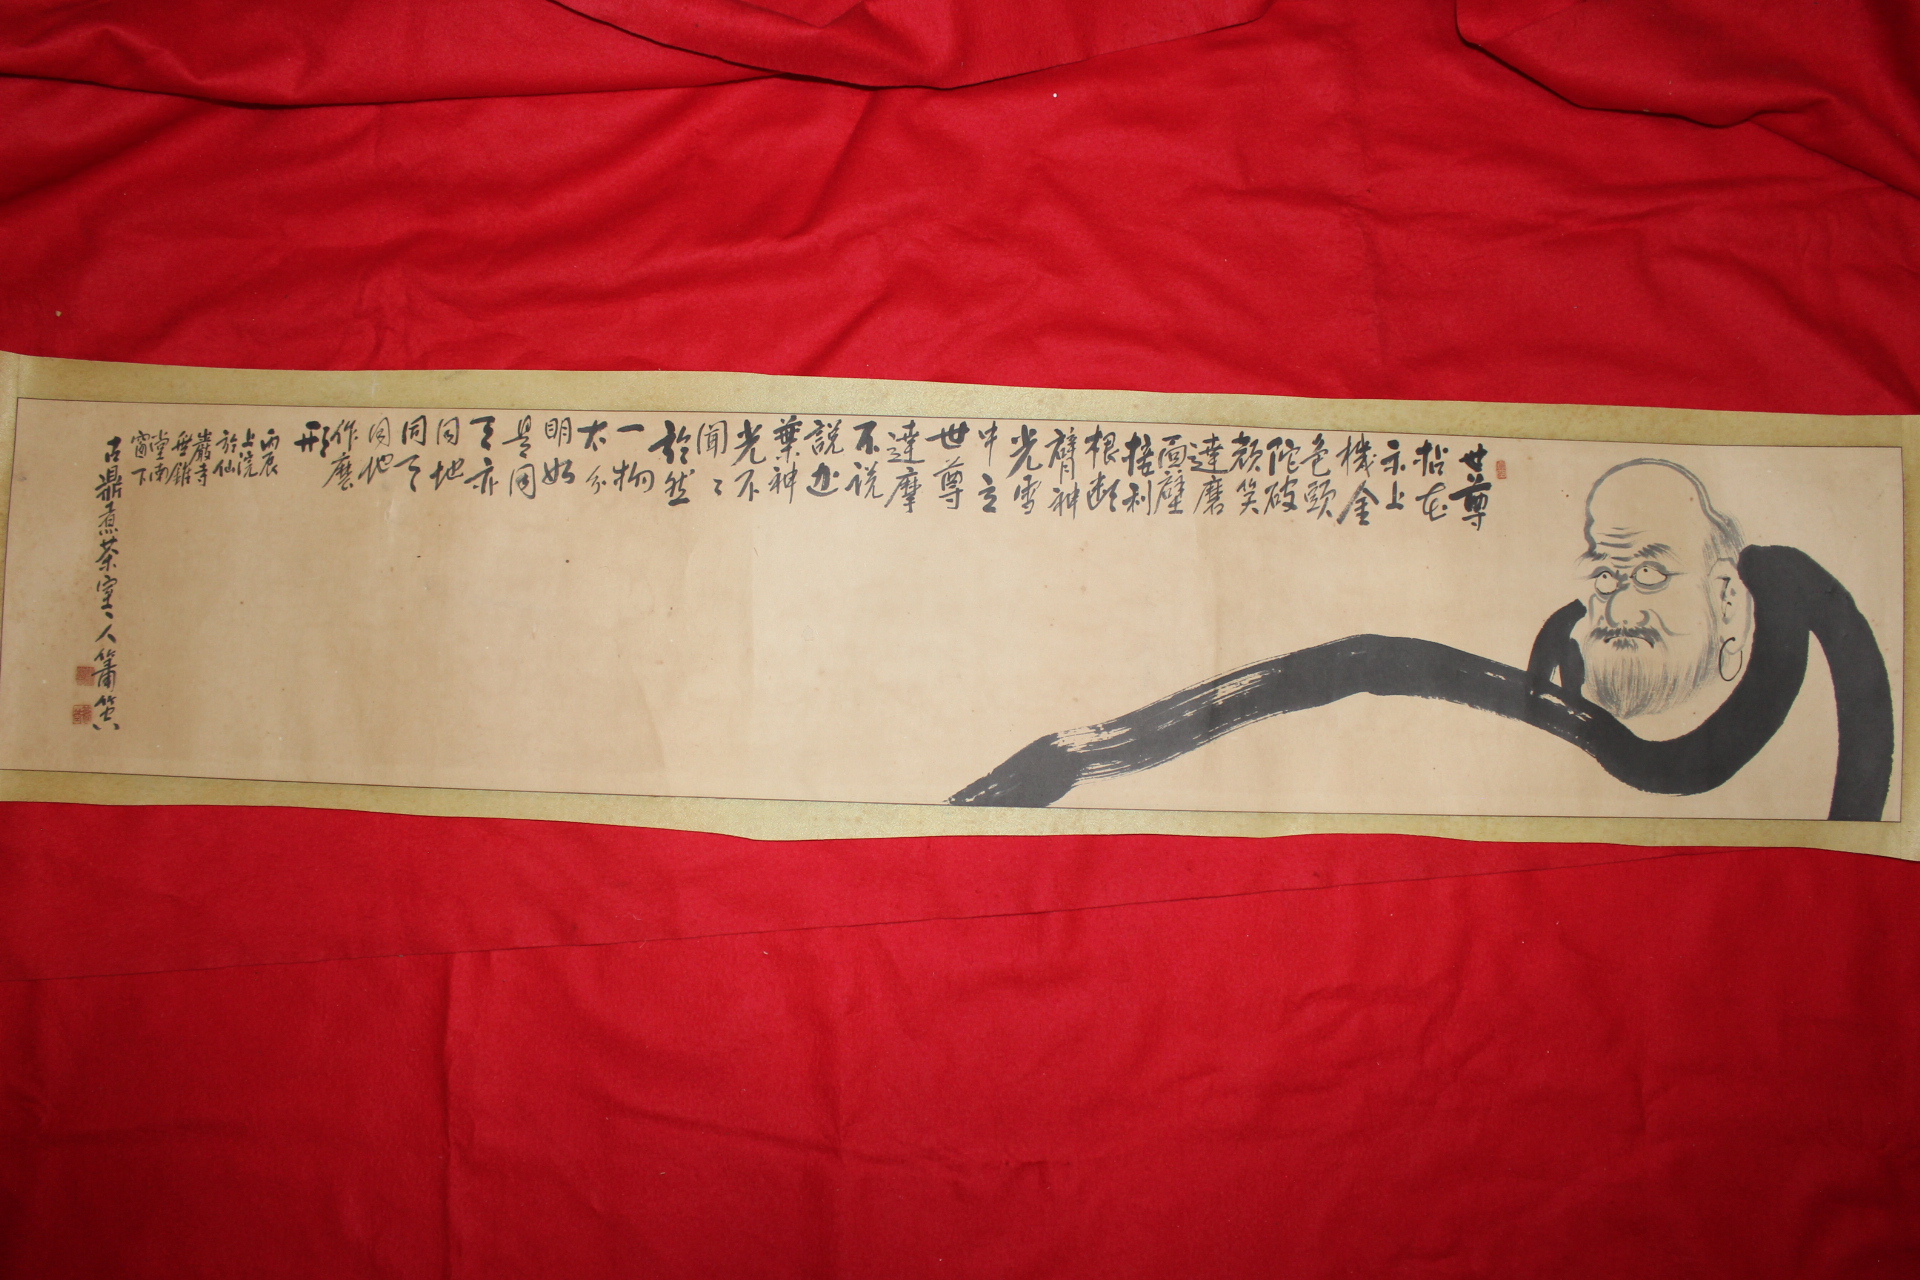 世尊
拈花
示上
機金
色頭
陀破
顔笑
達磨
面壁
接利
根断
臂神
光雪
中立
世尊
達摩
不说
説迦
葉神
光不
聞〻
於然
一物
太分
明如
是同
天亦
同地
同天
同地
作麼
形
丙辰
上浣
於仙
巖寺
無錐
堂南
窗下
古鼎煮茶室〻人箫